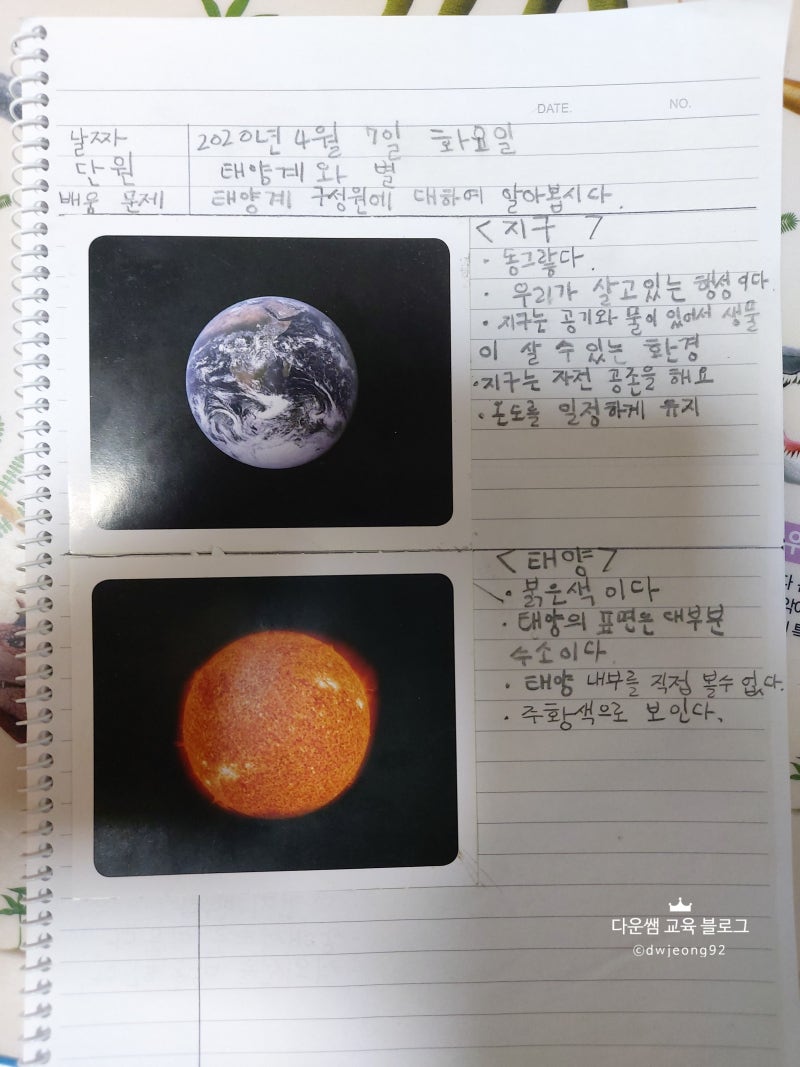 DATE. NO.
날짜 2020년 4월 7일 화요일
단원 태양계와 별
배움 문제 태양계 구성원에 대하여 알아봅시다.
<지구>
· 동그랗다.
· 우리가 살고있는 행성이다
· 지구는 공기와 물이 있어서 생물
이 살 수 있는 환경
· 지구는 자전 공존을 해요
· 온도를 일정하게 유지
<태양>
· 붉은색이다
· 태양의 표면은 대부분
수소이다
· 태양 내부를 직접 볼수 없다.
· 주황색으로 보인다.
다운쌤 교육 블로그
©dwjeong92